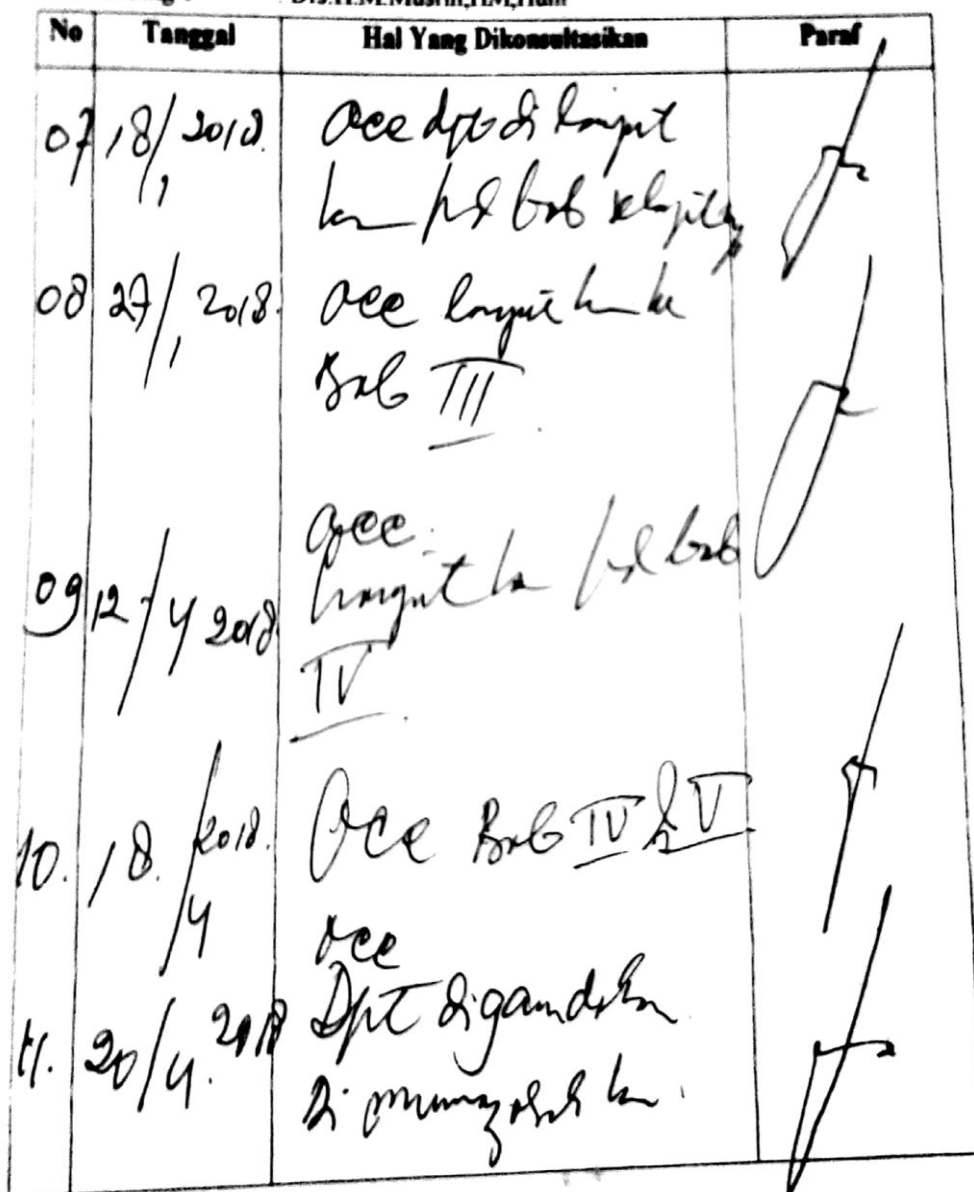 Drs.H.M.Musrin,HM,Hum
No Tanggal Hal Yang Dikonsultasikan Paraf
07 18/1 2018. Acc dpt di lanjut
kan pd bab
08 27/1 2018. Acc lanjut kan ke
Bab III
09 12/4 2018 Acc.
lanjut kan pd bab
IV
10. 18/4 2018. Acc Bab IV & V
11. 20/4. 2018 Acc
Dpt digandakan
Di munaqosah kan.